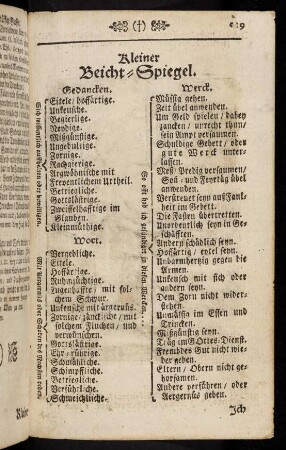 Kleiner
Beicht-Spiegel.
Gedancken.
Eitele/ hoffärtige.
Unkeusche.
Begierliche.
Neydige.
Mißgünstige.
Ungedultige.
Zornige.
Rachgierige.
Argwöhnische mit
Freventlichem Urtheil.
Betriegliche.
Gottslästrige.
Zweiffelhafftige im
Glauben.
Kleinmüthige.
Wort.
Vergebliche.
Eitele.
Hoffärtige.
Ruhmsüchtige.
Lugenhaffte/ mit fol-
chem Schwur.
Unkeusche mit ärgernuß.
Zornige/ zänckische/ mit
solchem Fluchen/ und
verwünschen.
Gottslästrige.
Ehr-rührige.
Schmähliche.
Schimpffliche.
Betriegliche.
Verführliche.
Schmeichliche.
Werck.
Müssig gehen.
Zeit übel anwenden.
Um Geld spielen/ dabey
zancken/ unrecht thun/
sein Ampt versaumen.
Schuldige Gebett/ oder
gute Werck unter-
lassen.
Meß/ Predig versaumen/
Son- und Feyrtäg übel
anwenden.
Verstreuet seyn aus Faul-
keit im Gebett.
Die Fasten übertretten.
Unordentlich seyn in Ge-
schäfften.
Underschiedlich seyn.
Hoffärtig/ eytel seyn.
Unbarmhertzig gegen die
Armen.
Unkeusch mit sich oder
andern seyn.
Dem Zorn nicht wider-
stehen.
Unmässig im Essen und
Trincken.
Mißgünstig seyn.
Träg im Gottes-Dienst.
Frembdes Gut nicht wie-
der geben.
Eltern/ Obern nicht ge-
horsamen.
Andere verführen/ oder
Aergernüs geben.
Ich